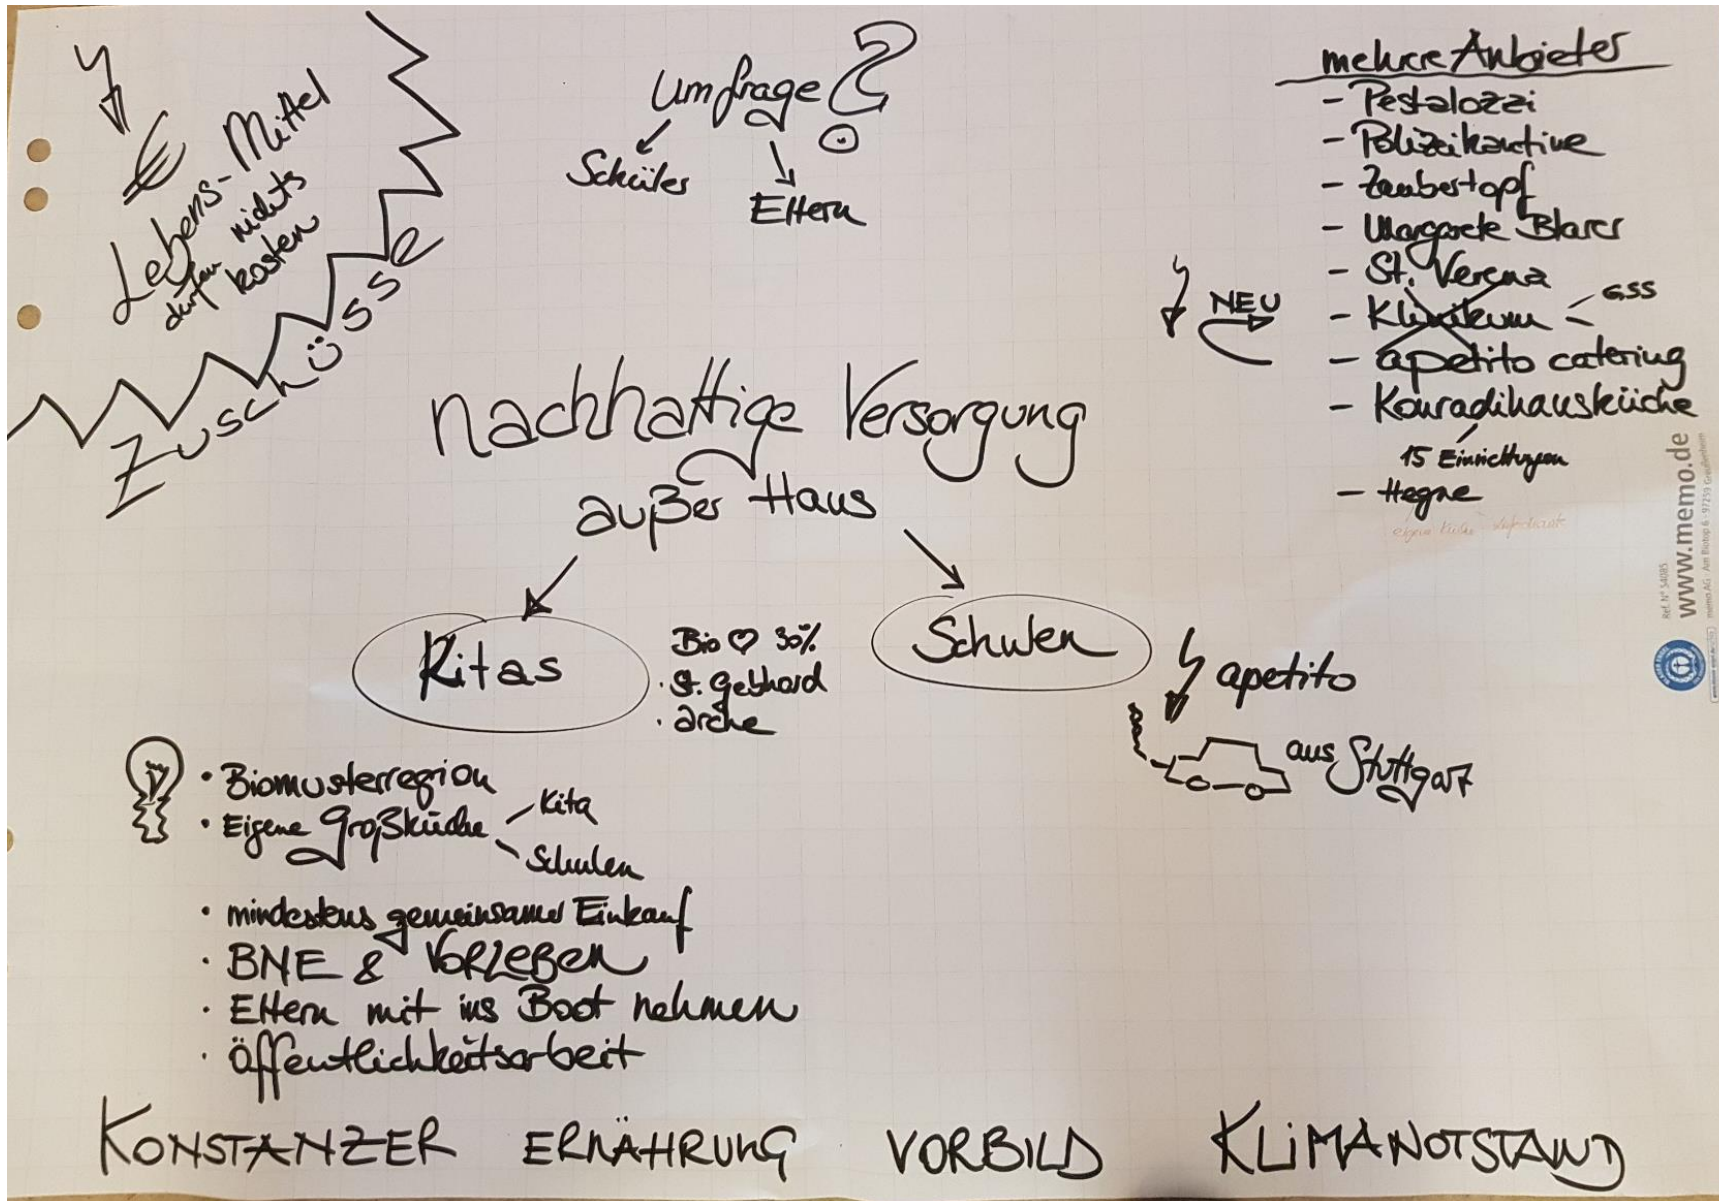 €
Lebens-Mittel
dürfen nichts
kosten
Zuschüsse
Umfrage?
Schüler
Eltern
mehrere Anbieter
- Pestalozzi
- Polizeikantine
- Zaubertopf
- Margarete Blarer
- St. Verena
- Klinikum - GSS
NEU
- apetito catering
- Konradihausküche
15 Einrichtungen
- Hegne
nachhaltige Versorgung
außer Haus
Kitas
Bio ♡ 30%
· St. Gebhard
· arche
Schulen
apetito
aus Stuttgart
• Biomusterregion
• Eigene Großküche
Kita
Schulen
• mindestens gemeinsamer Einkauf
• BNE & VORLEBEN
• Eltern mit ins Boot nehmen
• Öffentlichkeitsarbeit
KONSTANZER ERNÄHRUNG VORBILD KLIMANOTSTAND
Ref. N° 54085
www.memo.de